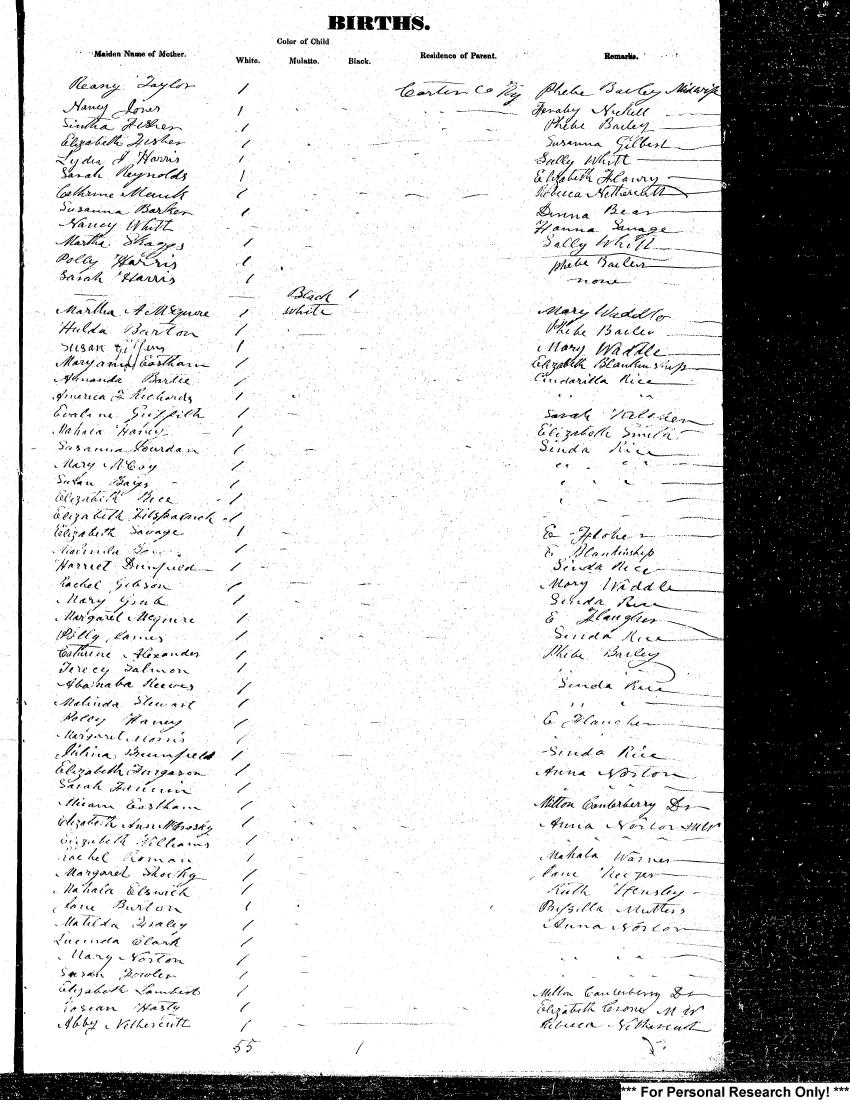 BIRTHS.
Color of Child
Maiden Name of Mother. White. Mulatto. Black. Residence of Parent. Remarks.
Reany Taylor 1 Carter Co Ky Phebe Bailey Midwife
Nancy Jones 1 Nickell
Sintha Fisher 1 Phebe Bailey
Elizabeth Fisher 1 Susanna Gilbert
Lydia J Harris 1 Sally Whitt
Sarah Reynolds 1 Elizabeth Flanry
Cathrine Mauk 1 Rebecca Nethercutt
Susanna Barker 1 Bear
Nancy Whitt Hanna Savage
Martha Skaggs 1 Sally Whitt
Polly Harris 1 Phebe Bailey
Sarah Harris 1 none
Black 1
Martha A McGuire 1 White Mary Waddle
Hulda Barton 1 Phebe Bailey
Susan 1 Mary Waddle
Maryann Eastham 1 Elizabeth Blankinship
Amanda Bartie 1 Cindarilla Rice
America F Richards 1 " "
Evaline Griffith 1 Sarah
Mahala Haney 1 Elizabeth Smith
Susanna Jourdan 1 Sinda Rice
Mary McCoy 1 " " "
Susan 1
Elizabeth Rice 1
Elizabeth Fitzpatrick 1
Elizabeth Savage 1 E
1 E Blankinship
Harriet Brumfield 1 Sinda Rice
Rachel Gibson 1 Mary Waddle
Mary Grub 1 Sinda Rice
Margaret McGuire 1 E Flaugher
Polly James 1 Sinda Rice
Cathrine Alexander 1 Phebe Bailey
Terecy Salmon 1 " "
Reeves 1 Sinda Rice
Malinda Stewart 1 " "
Polly Haney 1 E Flaugher
Margaret Morris 1
Brumfield 1 Sinda Rice
Elizabeth Furgason 1 Anna Norton
Sarah 1
Miram Eastham 1 Milton Canterberry Dr
Elizabeth Ann 1 Anna Norton MW
Elizabeth Williams 1 " " "
Rachel Roman 1 Mahala Warner
Margaret 1 Jane
Mahala Elswick 1 Ruth Hensley
Jane Burton 1 Prissilla Mutters
Matilda Fraley 1 Anna Norton
Lucinda Clark 1
Mary Norton 1
Susan Fowler 1
Elizabeth Lambert 1 Milton Canterberry Dr
Hasty 1 Elizabeth M W
Abby Nethercutt 1 Rebecca Nethercutt
55 1
*** For Personal Research Only! ***